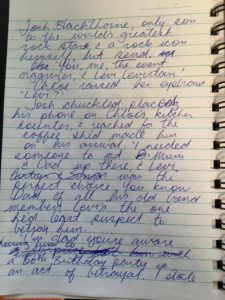 Josh Blackthorne, only son
to the world's greatest
rock star & a rock icon
himself hit send.
You, me, the event
organizer, & Levi Levistan."
Chloe raised her eyebrows
"Levi?"
Josh chuckled, placed
his phone on Chloe's kitchen
counter & reached for the
coffee she'd made him
on his arrival. "I needed
someone to get Mum
& Dad up there, & Levi
was the
perfect choice. You know
Dad of all his old band
members loves the one
he'd least suspect to
betray him.
"I'm glad you're aware
having him
a Birthday Party
an act of betrayal." stole